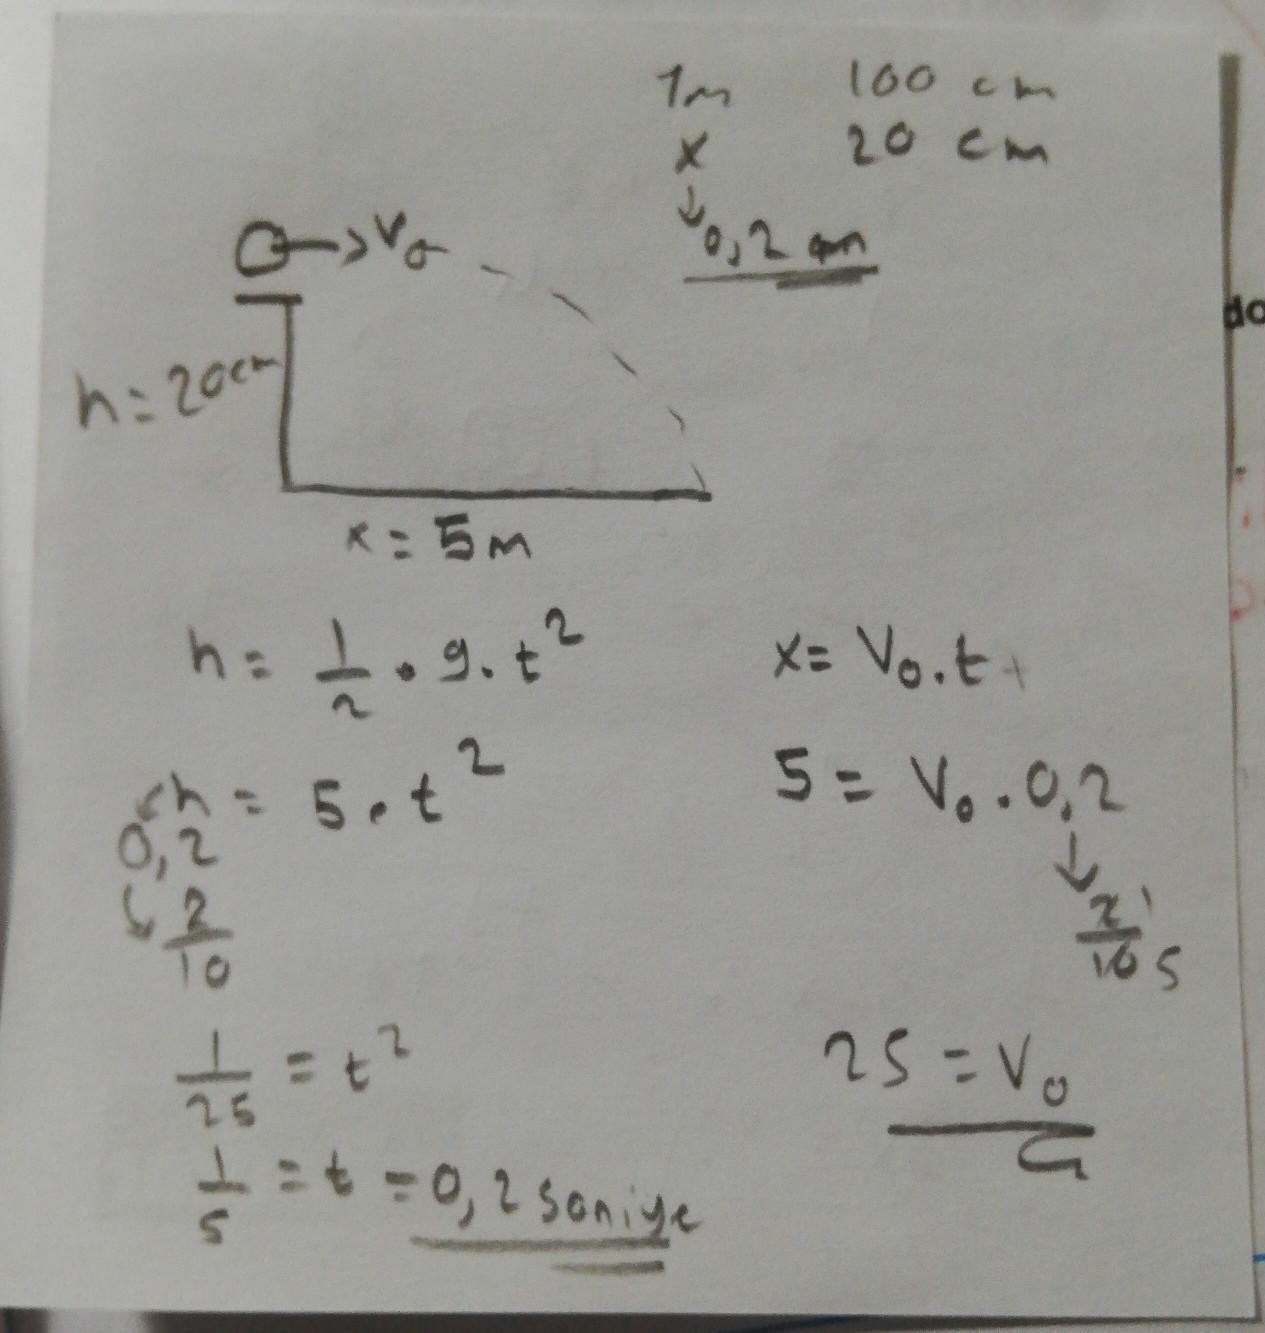 1m 100 cm
x 20 cm
↓
0,2 cm
→ V₀
h = 20cm
x = 5m
h = 1/2 . g . t²
h = 5 . t²
0,2
2/10
1/25 = t²
1/5 = t = 0,2 saniye
x = V₀ . t
5 = V₀ . 0,2
↓
2/10 1 5
25 = V₀
do